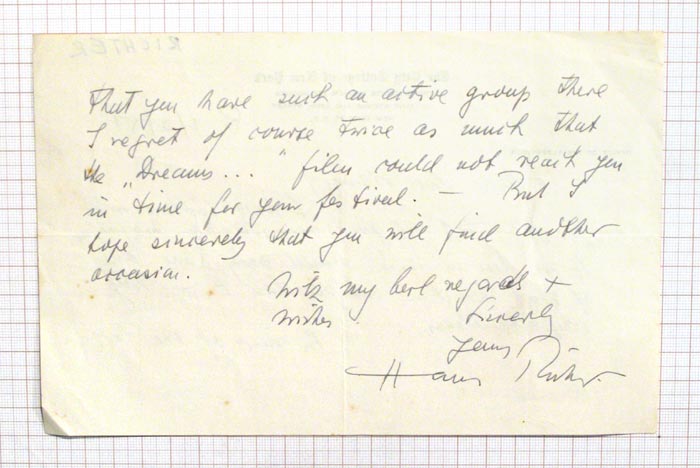 RICHTER
that you have such an active group there
I regret of course twice as much that
the „Dreams... " film could not reach you
in time for your festival. — But I
hope sincerely that you will find another
occasion.
With my best regards +
wishes Sincerely
yours
Hans Richter.